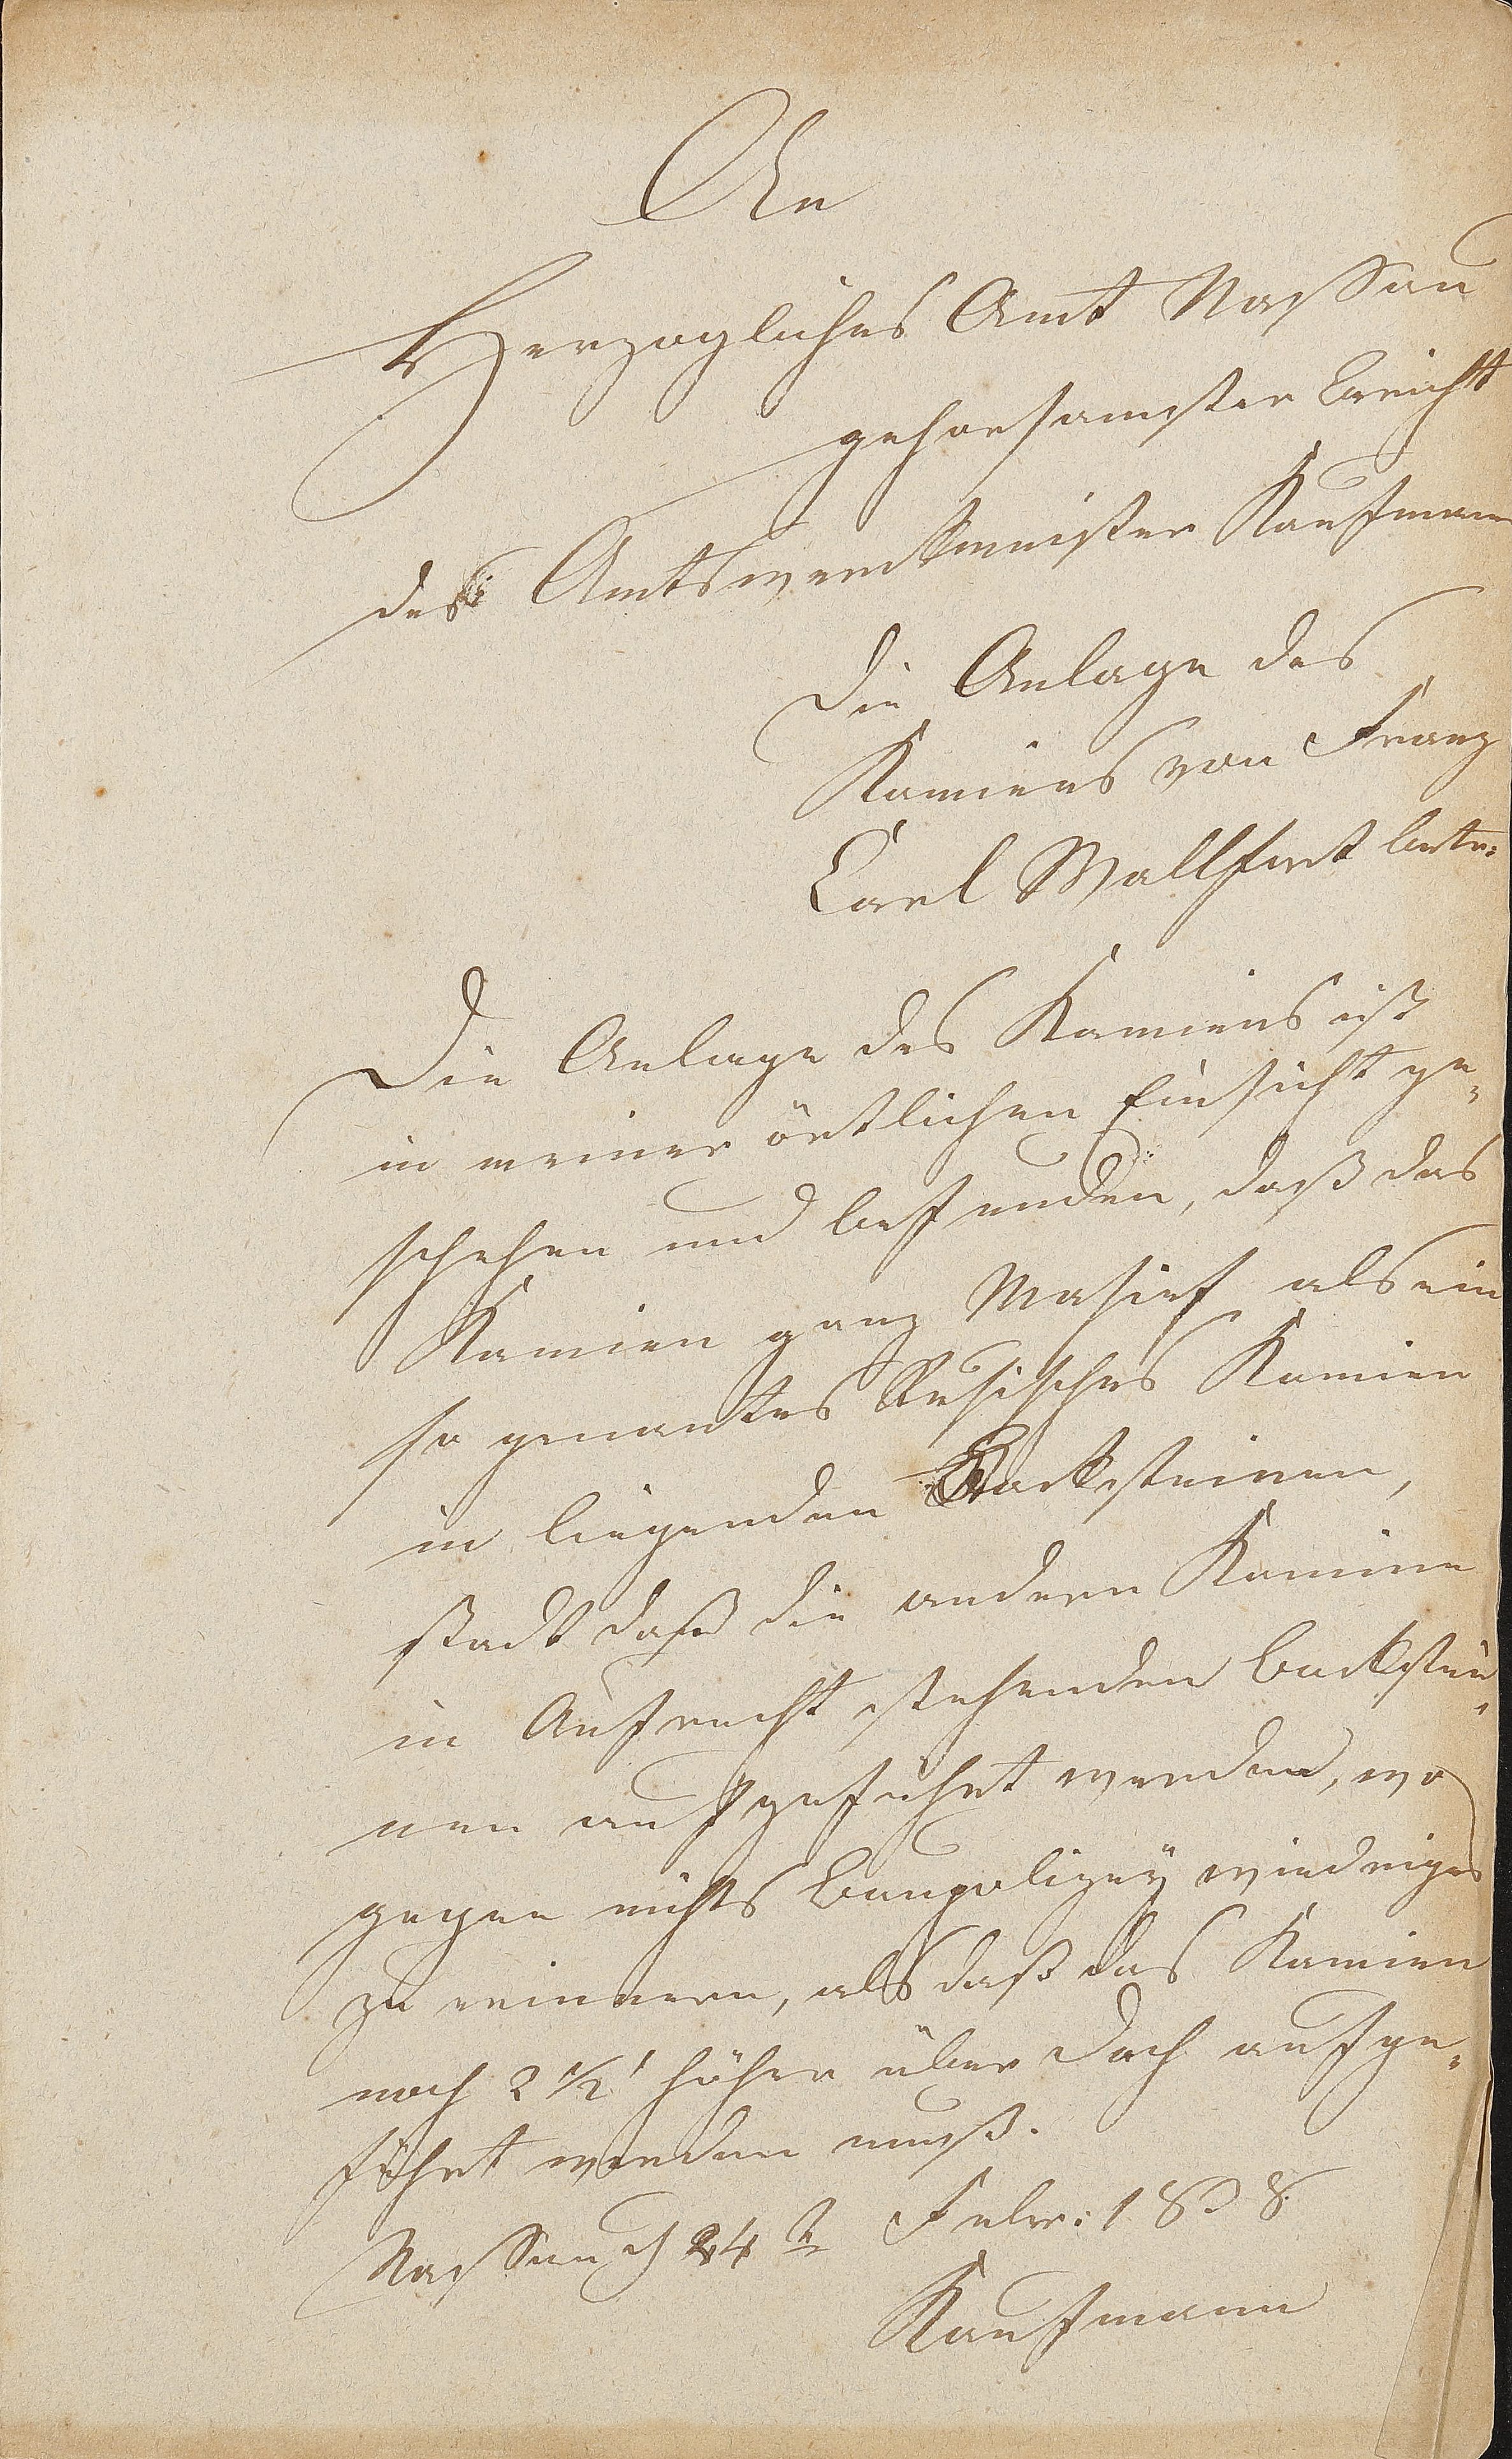 An
Herzogliches Amt Nassau
gehorsamster Bericht
des Amtswerkmeister Kaufmann
Die Anlage des
Kamiens von Franz
Carl Wallfart betr:
Die Anlage des Kamiens ist
in meiner örtlichen Einsicht ge-
schehen und befunden, daß das
Kamien ganz Masief als ein
so genantes Rusisches Kamien
in liegenden Backsteinen,
stadt daß die andern Kamine
in Aufrecht stehenden Backstei-
nen aufgeführt werden, wo
gegen nichts Baupolizey wiedriges
zu erinnern, als daß das Kamien
noch 2 1/2' höher über Dach aufge-
führt werden muß.
Nassau d 24t Febr: 1838
Kaufmann